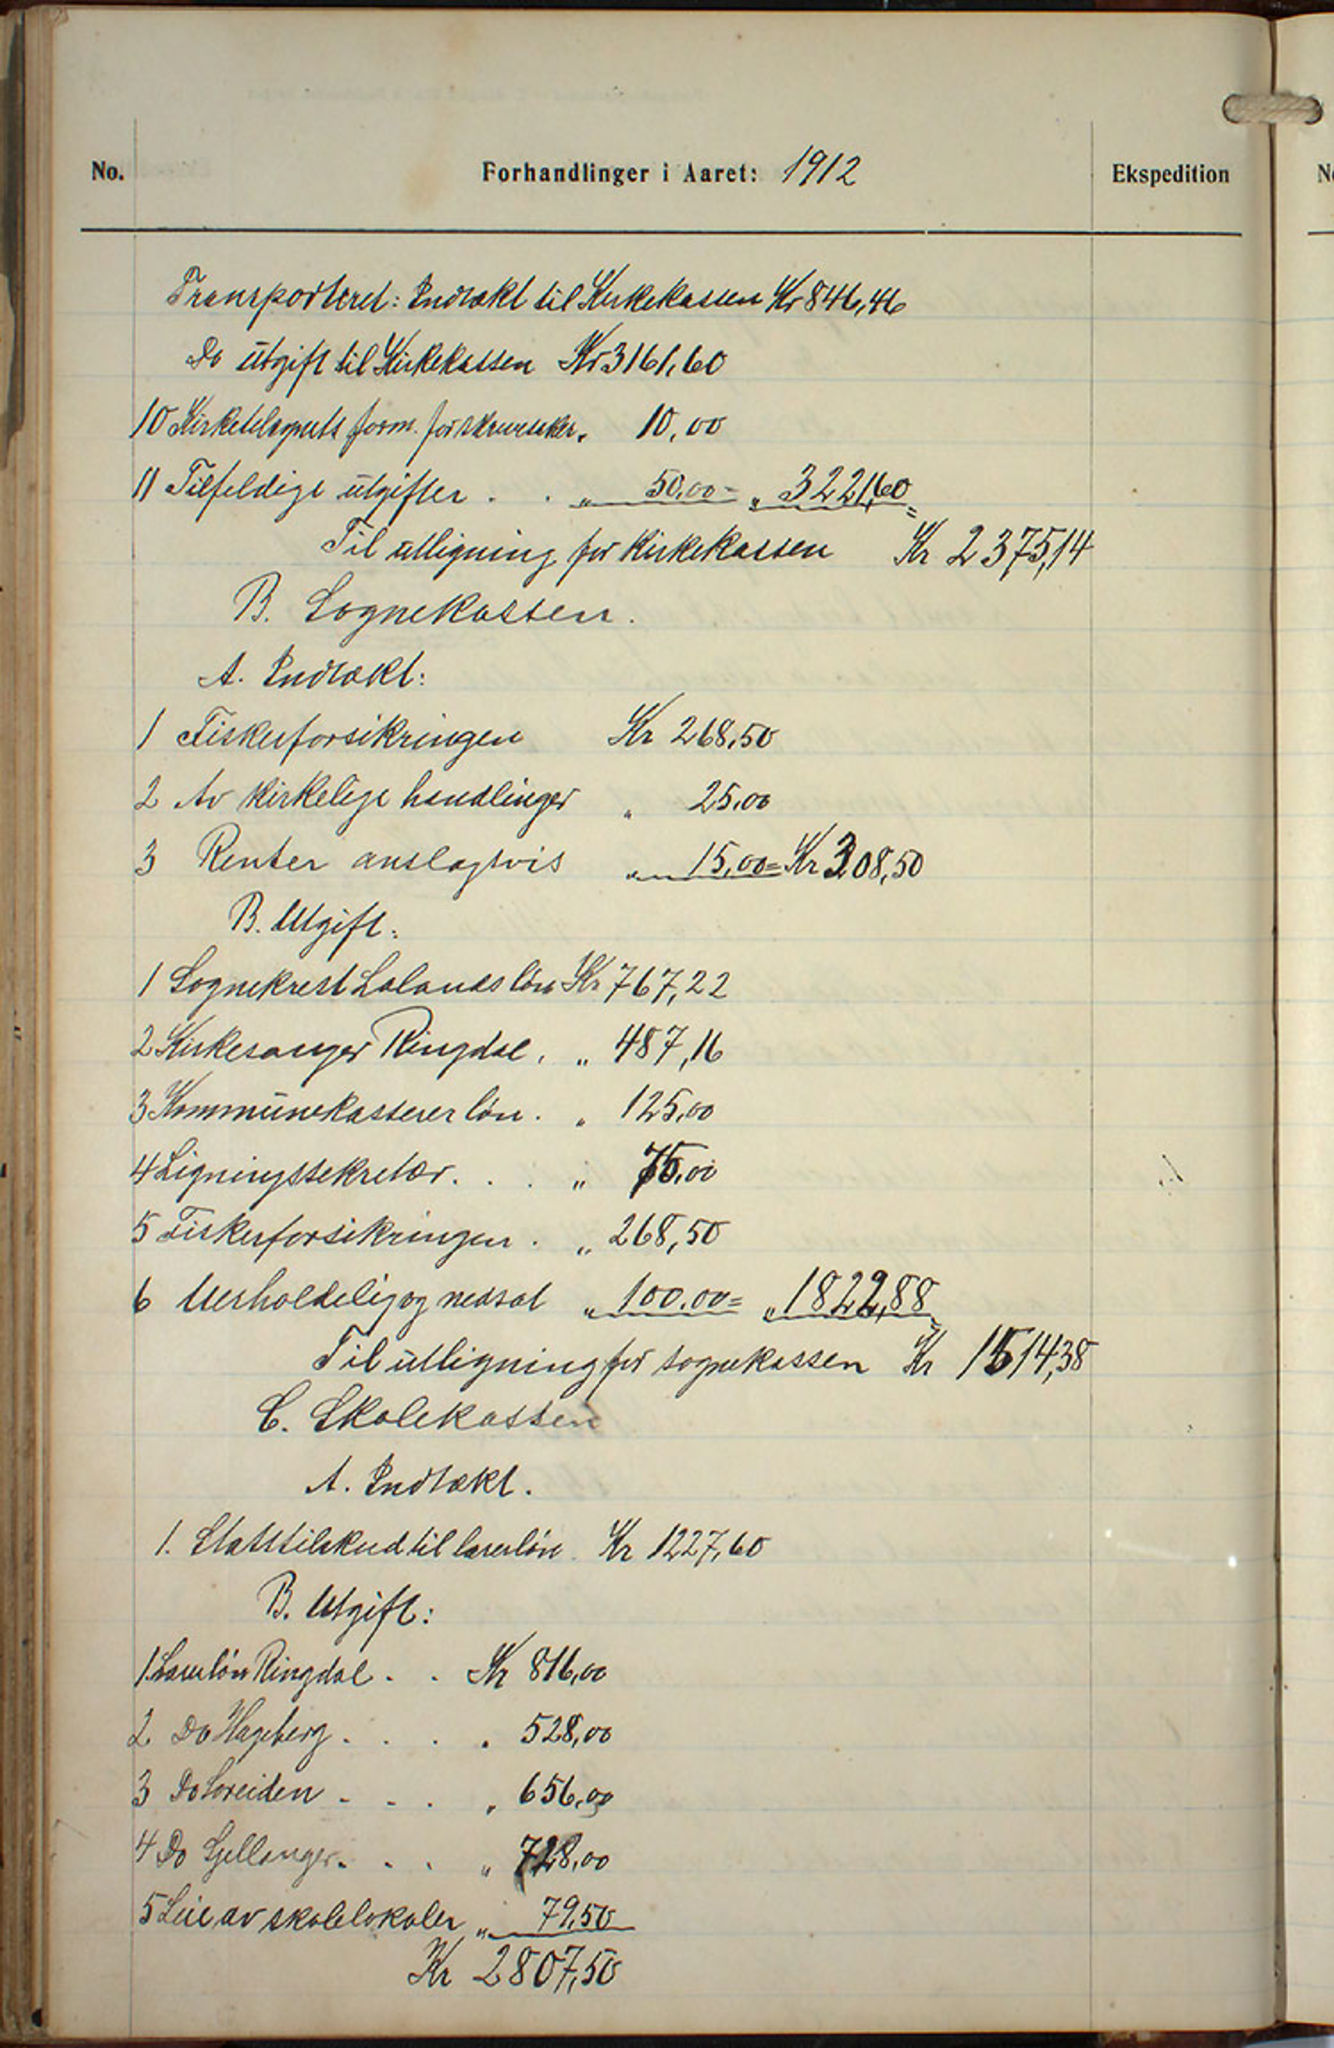 No. Forhandlinger i Aaret: 1912 Ekspedition
Transporteret: Indtækt til Kirkekassen Kr 846,46
Do utgift til Kirkekassen Kr 3161,60
10 Kirketilsynets form. for skrivesaker. 10,00
11 Tilfeldige utgifter . . „ 50,00 = „ 3221,60
Til utligning for Kirkekassen Kr 2375,14
B. Sognekassen.
A. Indtækt:
1 Fiskerforsikringen Kr 268,50
2 Av kirkelige handlinger „ 25,00
3 Renter anslagsvis „ 15,00 = Kr 308,50
B. Utgift:
1 Sogneprest Lalands løn Kr 767,22
2 Kirkesanger Ringdal. „ 487,16
3 Kommunekasserer løn. „ 125,00
4 Ligningssekretær. . . „ 75,00
5 Fiskerforsikringen . „ 268,50
6 Uerholdelig og nedsat „ 100,00 = „ 1822,88
Til utligning for sognekassen Kr 1514,38
C. Skolekassen
A. Indtækt.
1. Statstilskud til lærerløn Kr 1227,60
B. Utgift:
1. Lærerløn Ringdal . . Kr 816,00
2 Do Hageberg . . . „ 528,00
3 Do Loreiden . . . „ 656,00
4 Do Gjellanger. . . „ 728,00
5 Leie av skolelokaler „ 79,50
Kr 2807,50